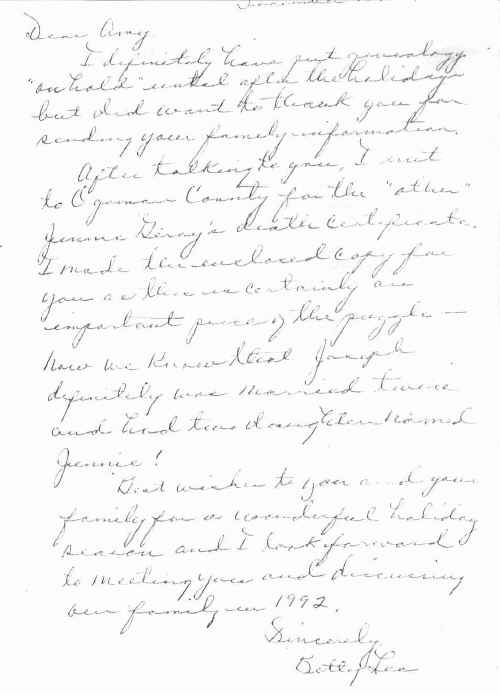 Dear Amy
I definitely have put genealogy
"on hold" until after the holidays
but did want to thank you for
sending your family information.
After talking to you, I wrote
to Ogemaw County for the "other"
Jennie Giroy's death certificate.
I made the enclosed copy for
you as this is certainly an
important piece of the puzzle —
now we know that Joseph
definitely was married twice
and had two daughters named
Jennie!
Best wishes to you and your
family for a wonderful holiday
season and I look forward
to meeting you and discussing
our family in 1992.
Sincerely,
Betty Lea